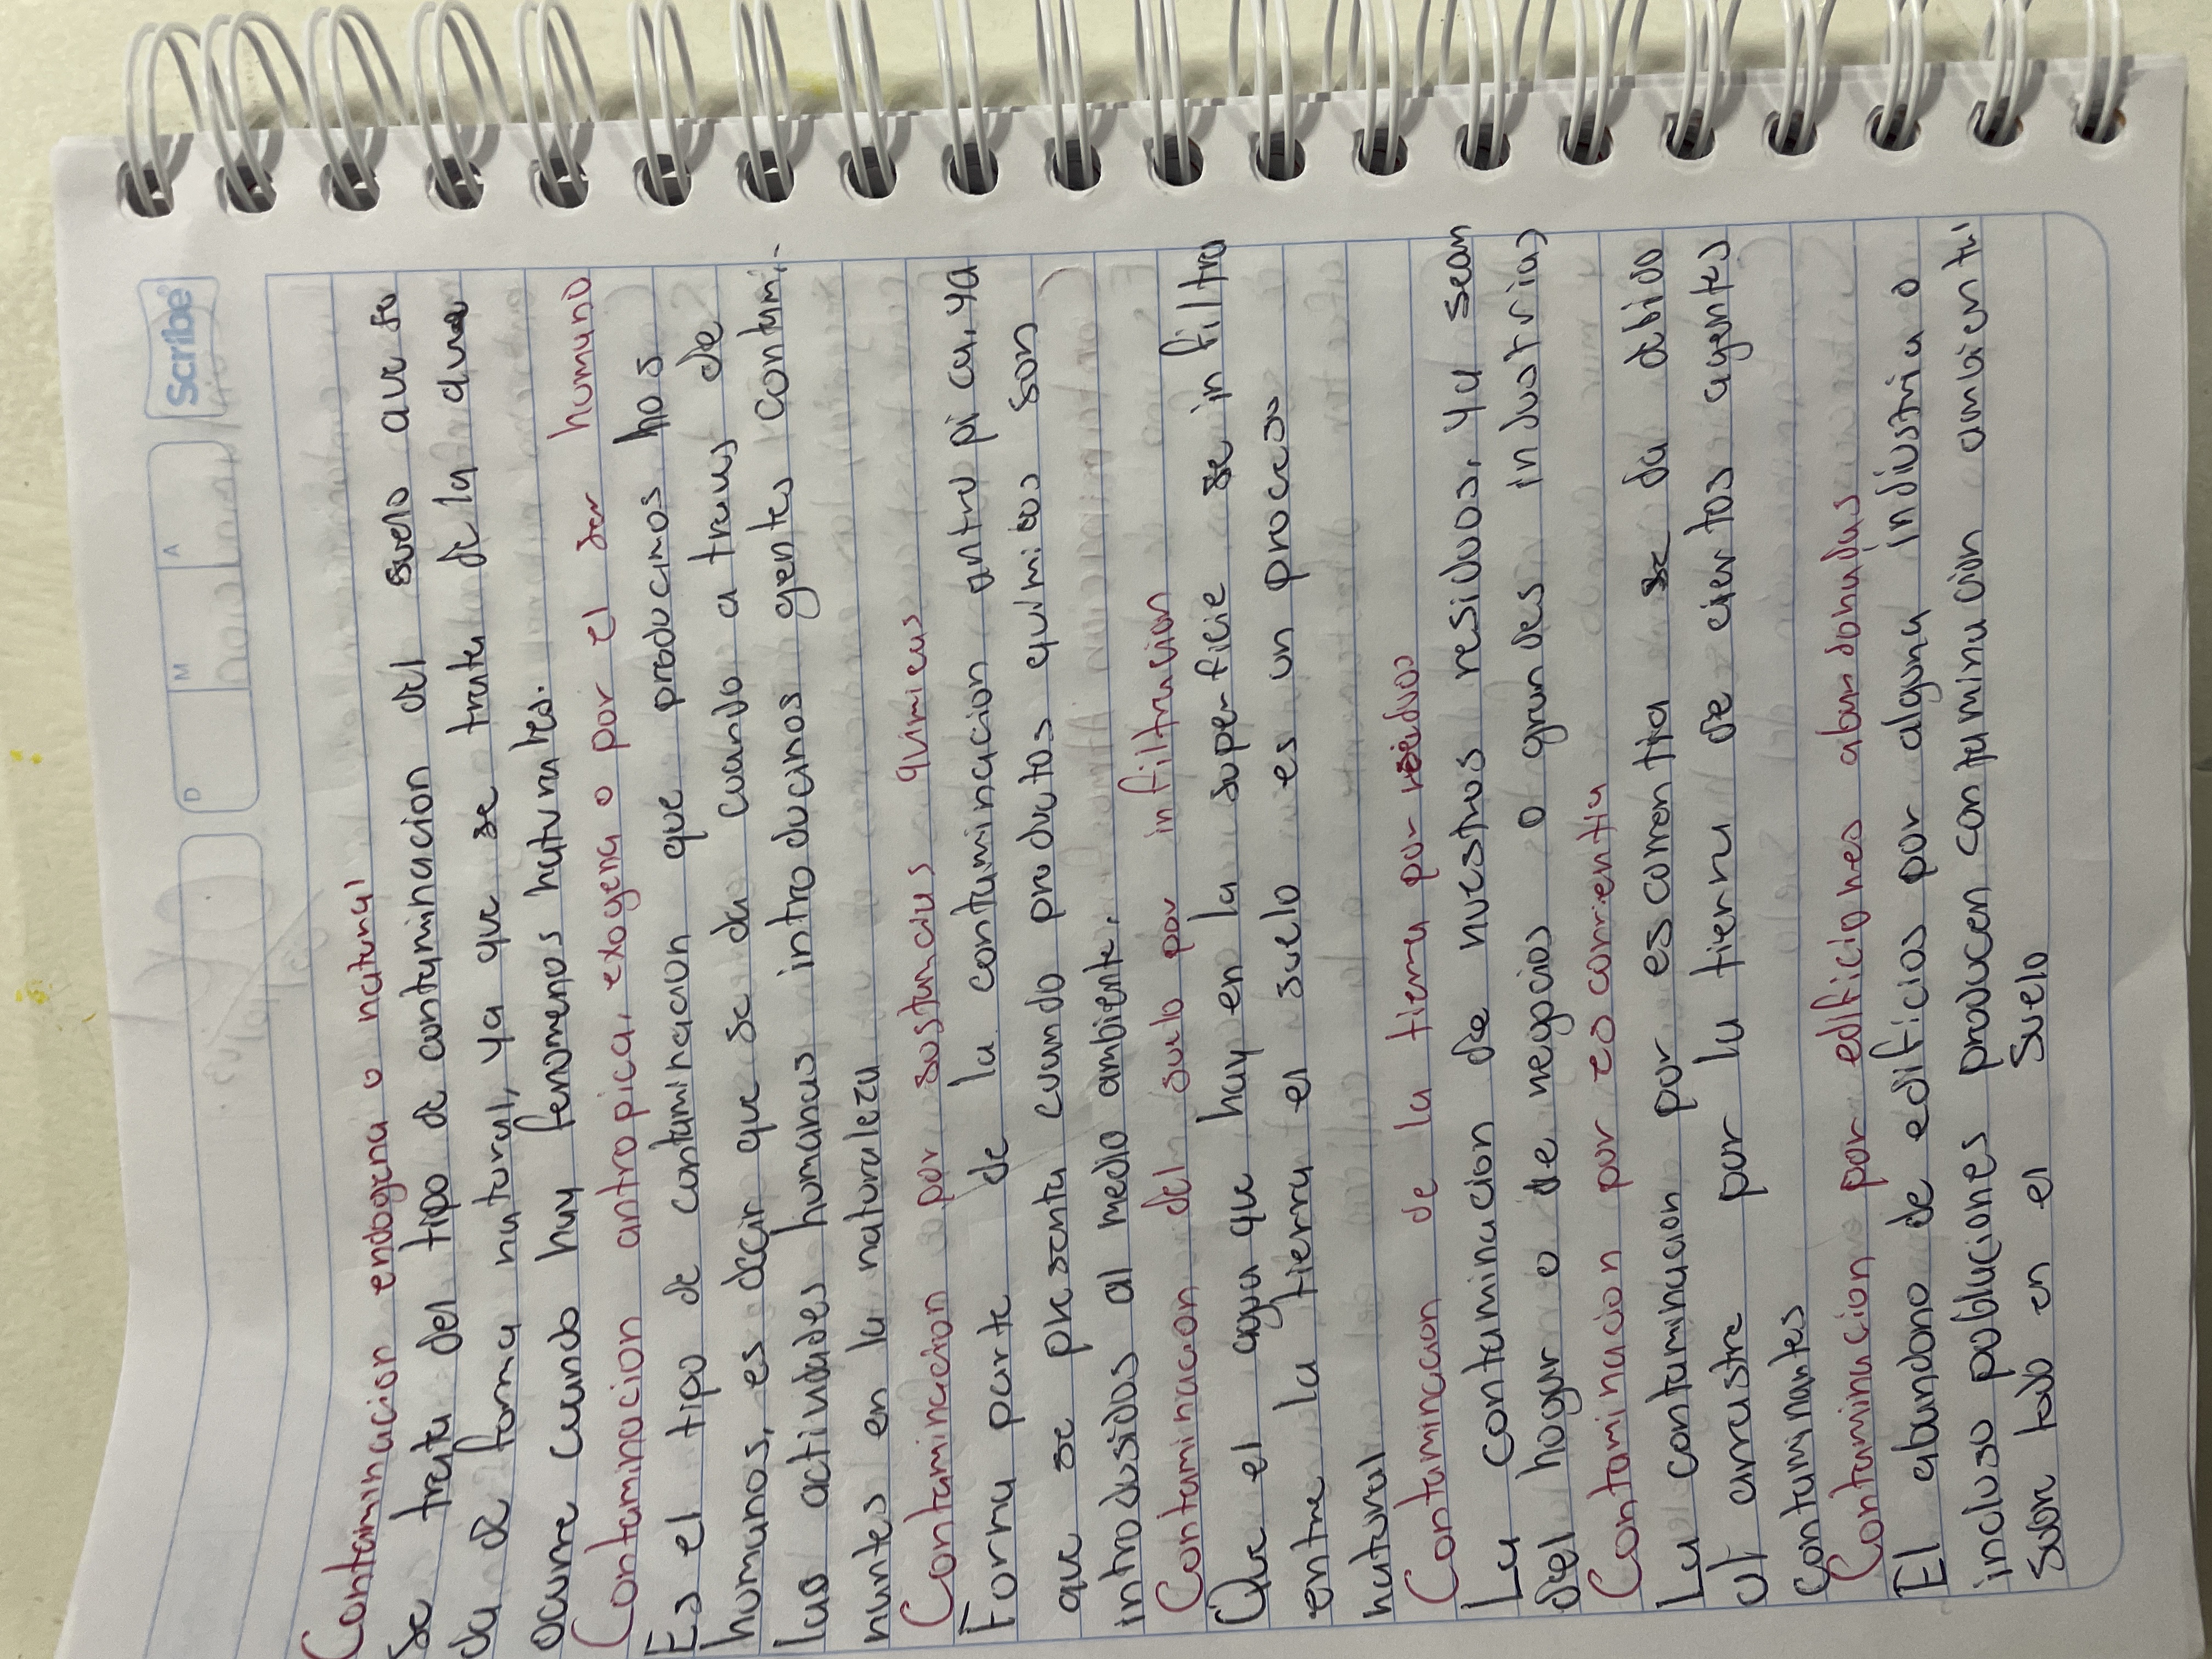 Scribe
D M A
Contaminacion endogena o natural
Se trata del tipo de contaminacion del suelo que se
da de forma natural, ya que se trata de la que
ocurre cuando hay fenomenos naturales.
Contaminacion antropica, exogena o por el ser humano
Es el tipo de contaminacion que producimos hos
humanos, es decir que se da cuando a traves de
las actividades humanas introducinos gentes contami-
nantes en la naturaleza
Contaminacion por sostancias quimicas
Forma parte de la contaminacion antropica, ya
que se presenta cuando productos quimicos son
introdusidos al medio ambiente.
Contaminacion del suelo por infiltracion
Que el agua que hay en la superficie se infiltra
entre la tierra el suelo es un proceso
natural
Contaminacion de la tierra por residuos
La contaminacion de nuestros residuos, ya sean
del hogar o de negocios o grandes industrias
Contaminacion por escorrentia
La contaminacion por escorrentia se da debido
al arrastre por la tierra de ciertos agentes
contaminantes
Contaminacion por edificiones abandonadas
El abandono de edificios por alguna indiustria o
incluso poblaciones producen contaminacion ambiental
sobre todo en el suelo